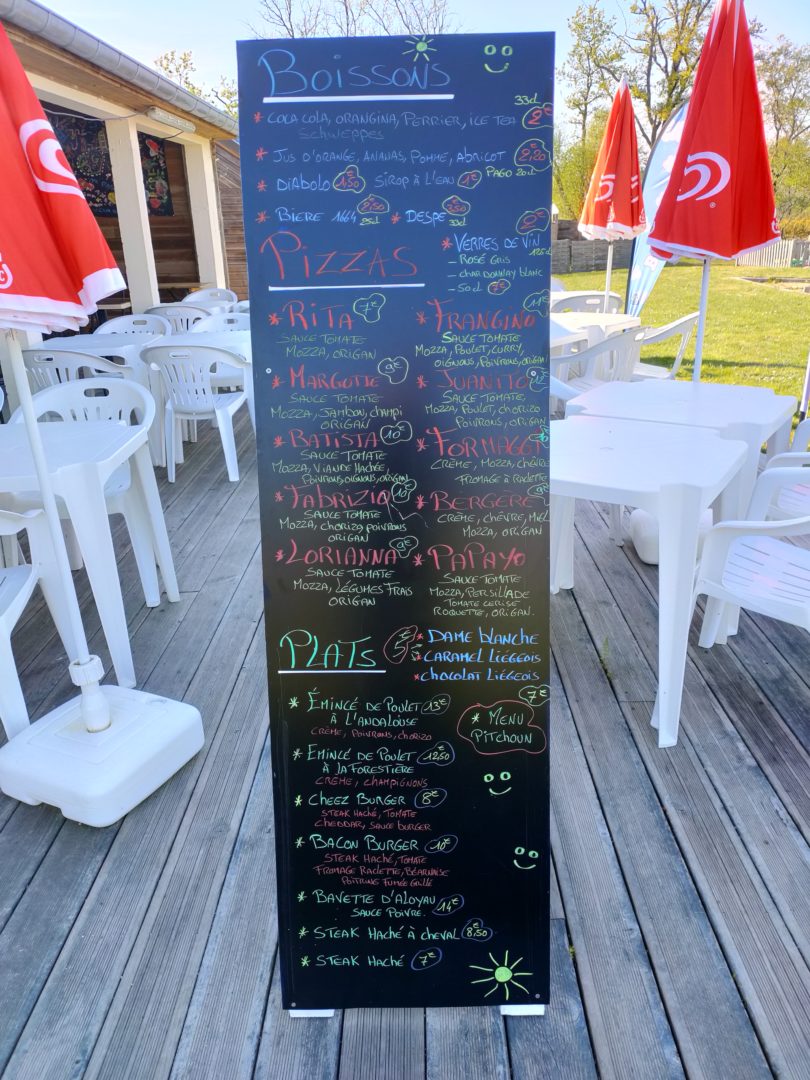 Boissons
* COCA COLA, ORANGINA, PERRIER, ICE TEA 33cl 2€
Schweppes
* JUS D'ORANGE, ANANAS, POMME, ABRICOT 2,20
PAGO 20cl
* DIABOLO 1,50 SIROP À L'EAU 1€
* BIERE 1664 2,50 25cl * DESPE 3,50 33cl
* VERRES DE VIN 2€
12,5cl
- ROSÉ GRIS
- CHARDONNAY BLANC
- 50cl 7€
PIZZAS
* RITA 7€
SAUCE TOMATE
MOZZA, ORIGAN
* MARGOTTE 9€
SAUCE TOMATE
MOZZA, JAMBON, CHAMPI
ORIGAN
* BATISTA 10€
SAUCE TOMATE
MOZZA, VIANDE HACHÉE,
POIVRONS, OIGNONS, ORIGAN
* FABRIZIO 10€
SAUCE TOMATE
MOZZA, CHORIZO, POIVRONS
ORIGAN
* LORIANNA 9€
SAUCE TOMATE
MOZZA, LÉGUMES FRAIS
ORIGAN
* FRANGINO
SAUCE TOMATE
MOZZA, POULET, CURRY,
OIGNONS, POIVRONS, ORIGAN
* JUANITO
SAUCE TOMATE,
MOZZA, POULET, CHORIZO
POIVRONS, ORIGAN
* FORMAGGI
CRÈME, MOZZA, CHÈVRE
FROMAGE À RACLETTE
* BERGERE 9€
CRÈME, CHÈVRE, MIEL
MOZZA, ORIGAN
* PAPAYO
SAUCE TOMATE
MOZZA, PERSILLADE
TOMATE CERISE
ROQUETTE, ORIGAN.
5€
* DAME BLANCHE
* CARAMEL LIÉGEOIS
* CHOCOLAT LIÉGEOIS
PLATS
* ÉMINCÉ DE POULET 13€
À L'ANDALOUSE
CRÈME, POIVRONS, CHORIZO
* EMINCÉ DE POULET 12,50
À LA FORESTIÈRE
CRÈME, CHAMPIGNONS
* CHEEZ BURGER 8€
STEAK HACHÉ, TOMATE
CHEDDAR, SAUCE BURGER
* BACON BURGER 10€
STEAK HACHÉ, TOMATE
FROMAGE RACLETTE, BÉARNAISE
POITRINE FUMÉE GRILLÉ
* BAVETTE D'ALOYAU 14€
SAUCE POIVRE.
* STEAK HACHÉ À CHEVAL 8,50€
* STEAK HACHÉ 7€
7€
* MENU
PITCHOUN